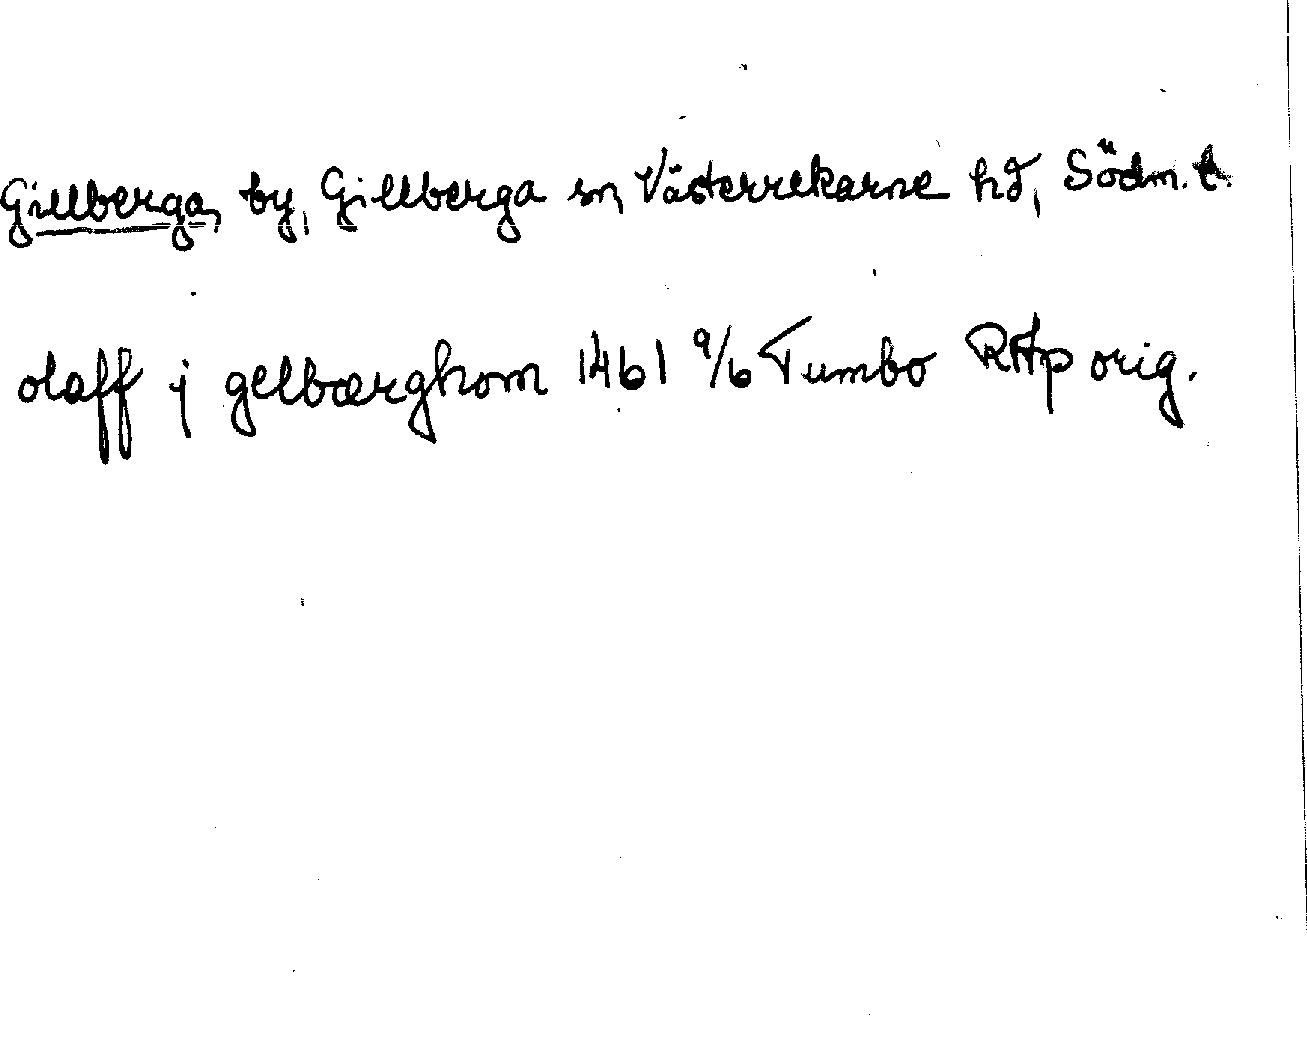 Gillberga, by, Gillberga sn, Västerrekarne hd, Södm. l.
olaff j gelbærghom 1461 9/6 Tumbo RAp orig.